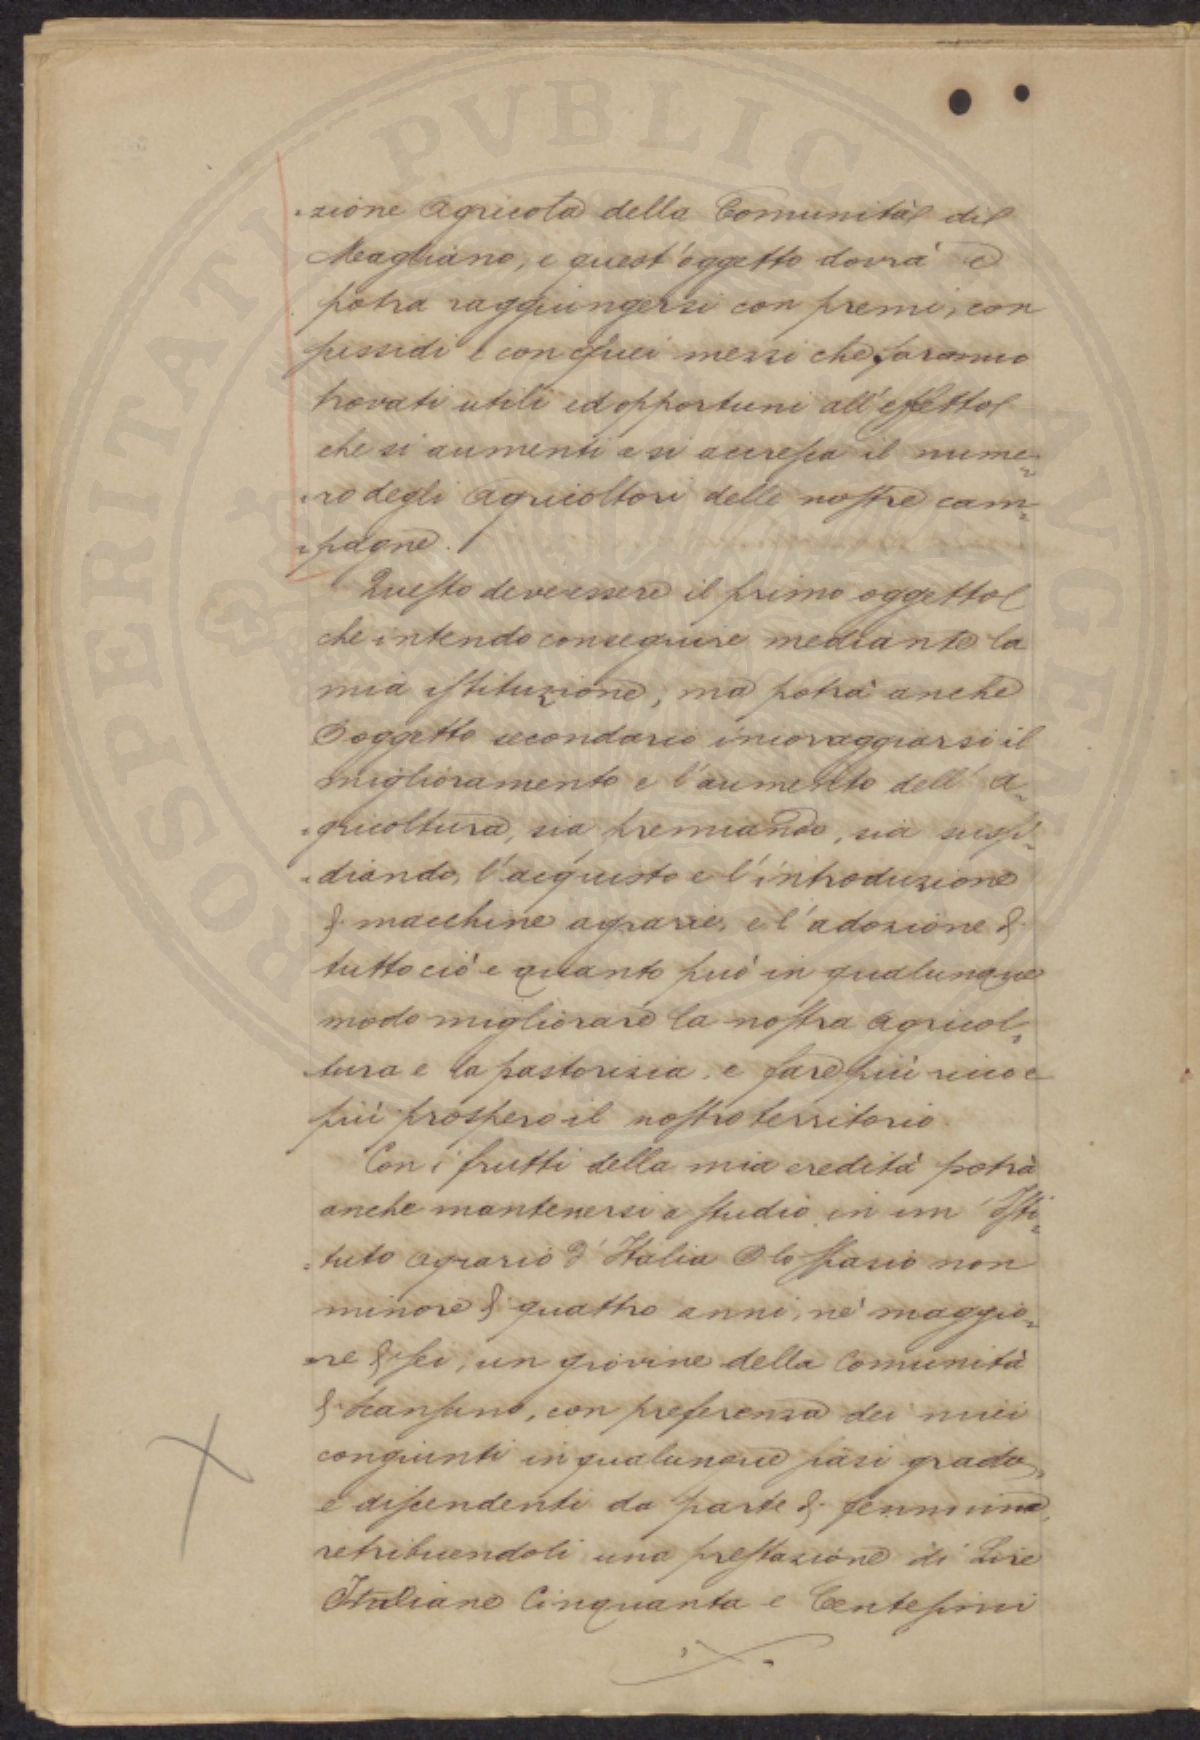 zione Agricola della Comunità di
Magliano, e quest'oggetto dovrà e
potrà raggiungersi con premi, con
sussidi e con quei mezzi che saranno
trovati utili ed opportuni all'effetto
che si aumenti e si accresca il nume-
ro degli Agricoltori delle nostre cam-
pagne.
Questo deve essere il primo oggetto
che intendo conseguire mediante la
mia istituzione, ma potrà anche
oggetto secondario incoraggiarsi il
miglioramento e l'aumento dell'A-
gricoltura, sia premiando, sia sussi-
diando, l'acquisto e l'introduzione
di macchine agrarie, e l'adozione di
tutto ciò e quanto può in qualunque
modo migliorare la nostra Agricol-
tura e la pastorizia, e fare più ricco e
più prospero il nostro territorio.
Con i frutti della mia eredità potrà
anche mantenersi a studio in un Isti-
tuto Agrario d'Italia lo spazio non
minore di quattro anni, né maggio-
re di sei, un giovine della Comunità
di Scansano, con preferenza dei miei
congiunti in qualunque siasi grado,
e discendenti da parte di femmina,
retribuendoli una prestazione di Lire
Italiane Cinquanta e Centesimi
PROSPERITATI PVBLICAE AVGENDAE